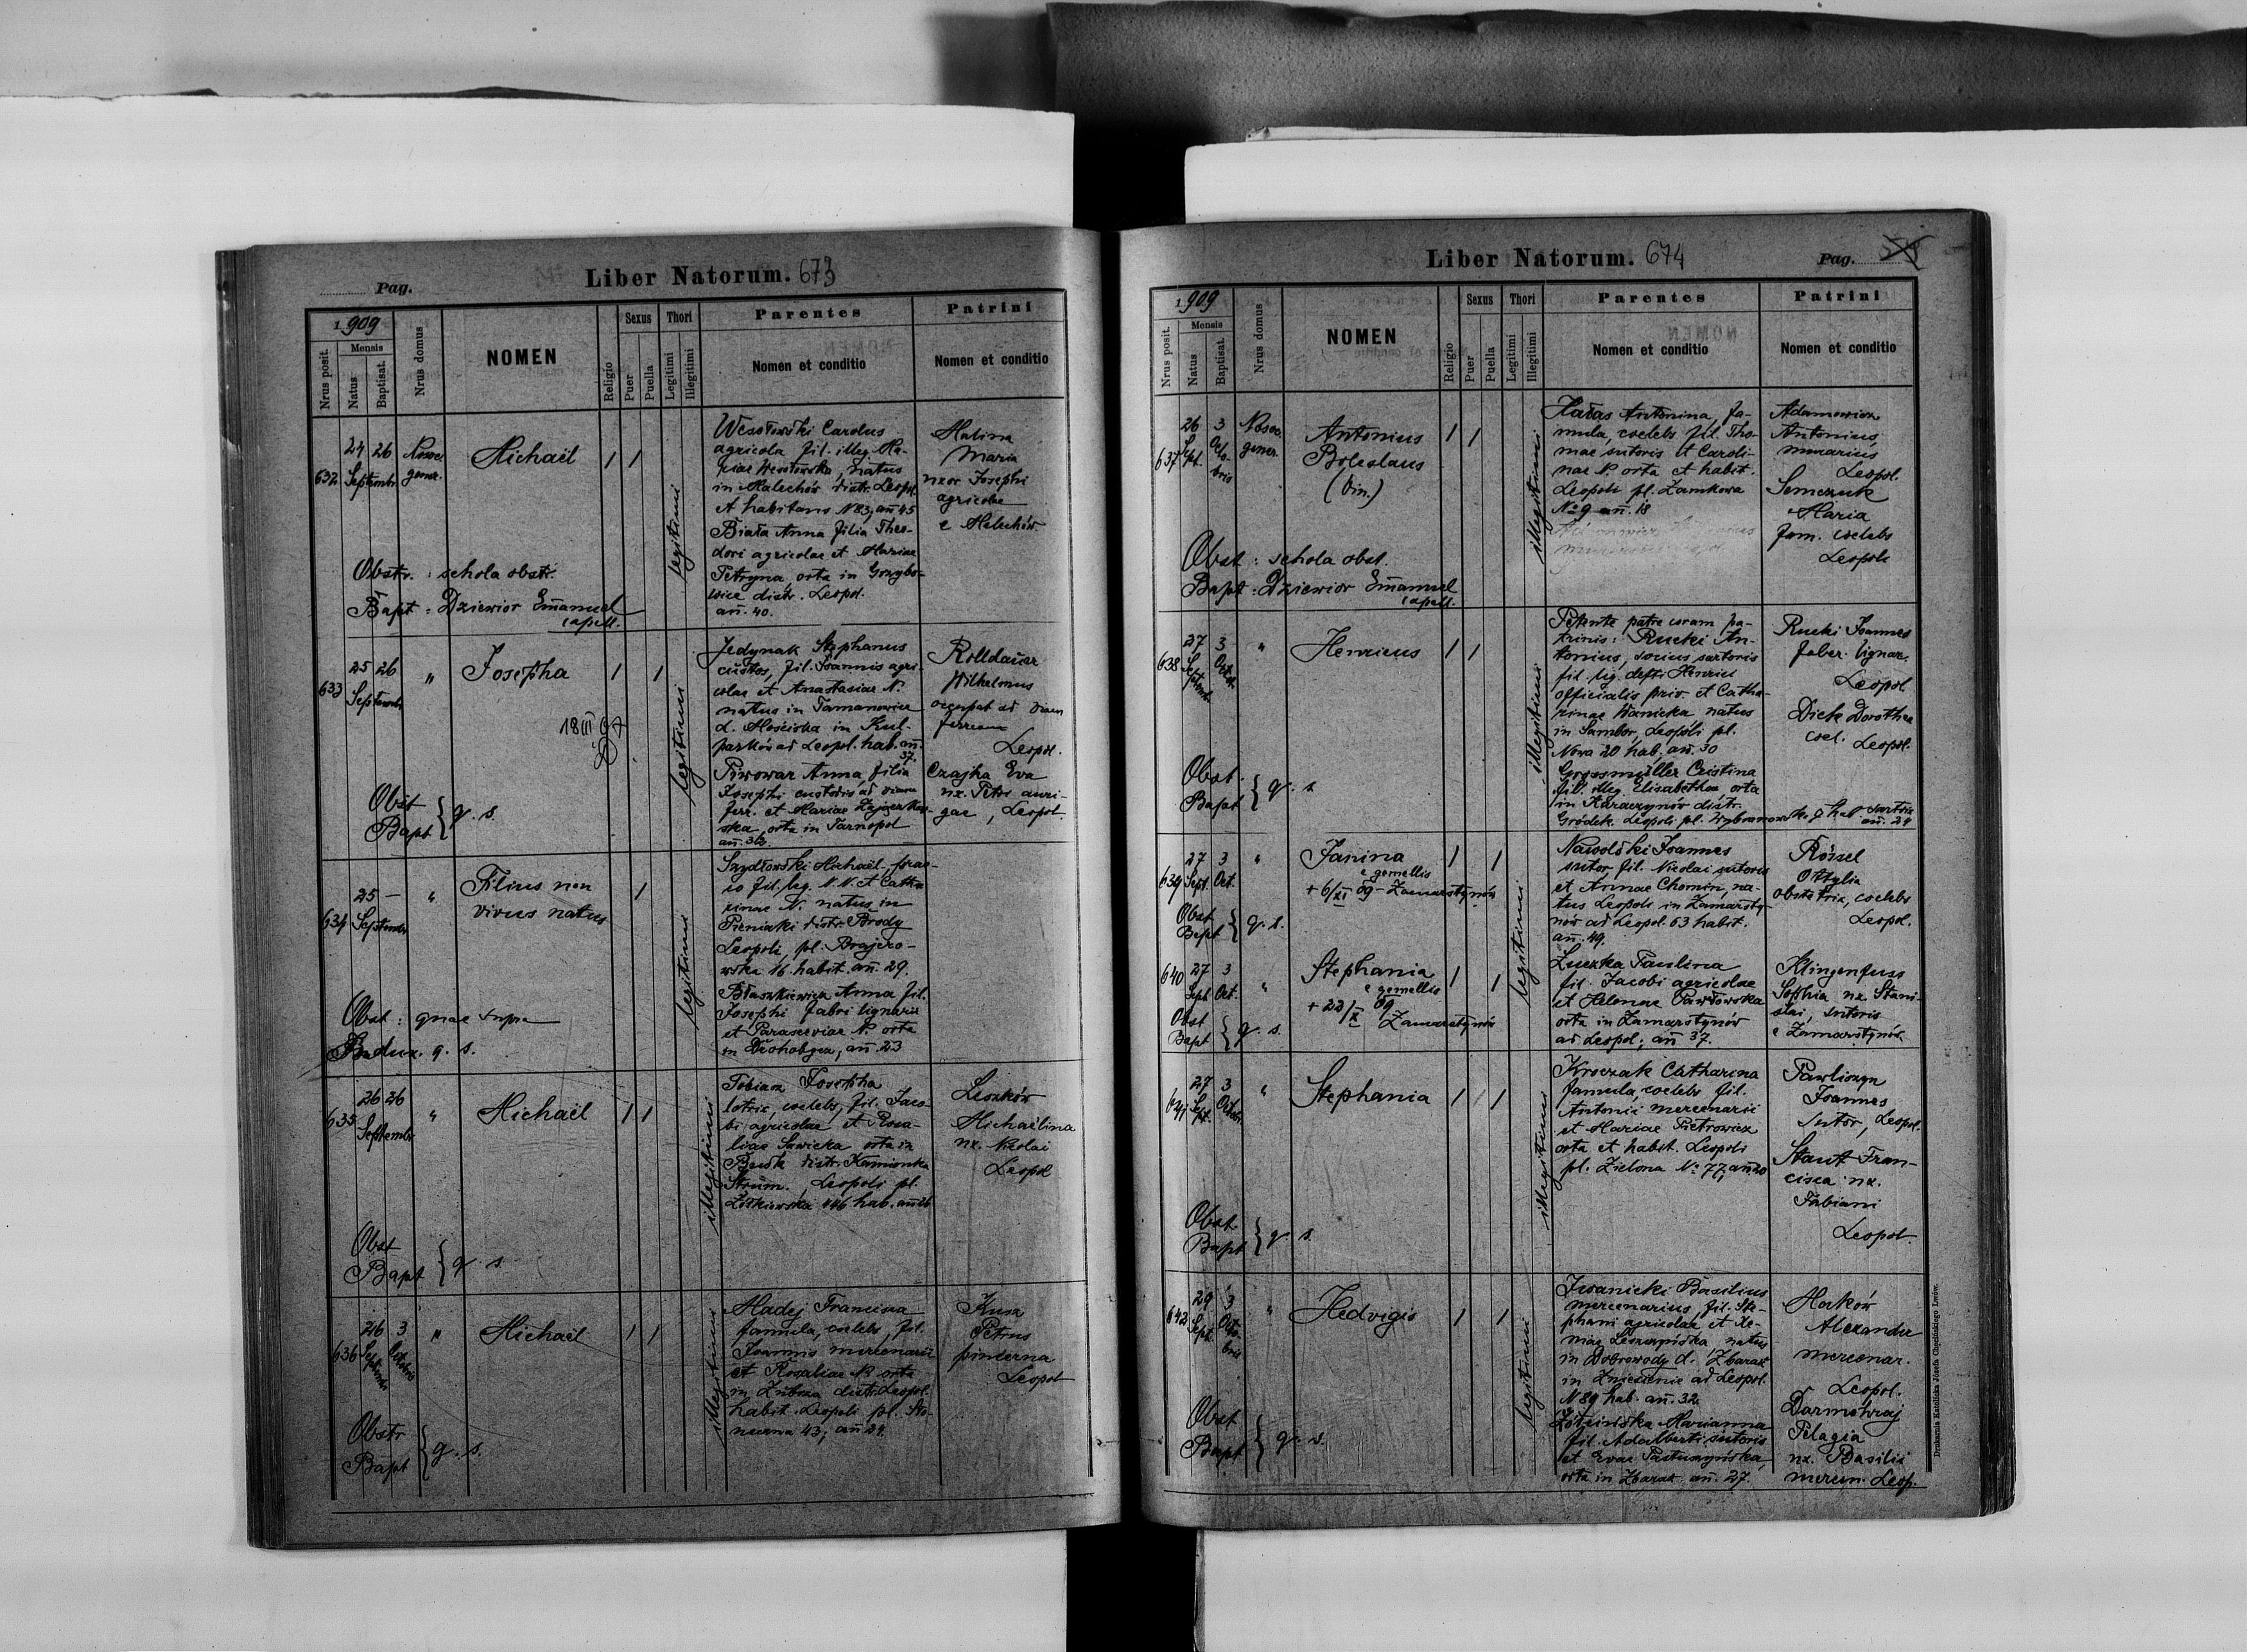 Pag.
Liber Natorum. 673
1909
Nrus posit.
Mensis
Natus
Baptisat.
Nrus domus
NOMEN
Religio
Sexus
Puer
Puella
Thori
Legitimi
Illegitimi
Parentes
Nomen et conditio
Patrini
Nomen et conditio
632
24 26
Septembr.
gener.
Michaël
1 1
legitimi
Wesołowski Carolus
agricola fil. illeg. Ma-
riae Wesołowska, natus
in Malechów distr. Leopol.
et habitans N 83, an̄ 45
Biała Anna filia Theo-
dori agricolae et Mariae
Petryna, orta in Grzybo-
wice distr. Leopol.
an̄. 40.
Malina
Maria
uxor Josephi
agricolae
e Malechów
Obstr. : schola obstr.
Bapt : Dziewior Emanuel
capell.
633
25 26
Septembr.
"
Josepha
1 1
legitimi
Jedynak Stephanus
custos, fil. Joannis agri-
colae et Anastasiae N.
natus in Tamanowice
d. Mościska in Kul-
parków ad Leopol. hab. an̄.
37.
Piwowar Anna, filia
Josephi custodis ad viam
ferr. et Mariae
orta in Tarnopol
an̄. 36.
Rolldauer
Wilhelmus
occupat. ad viam
ferream
Leopol.
Czajka Eva
ux. Petri auri-
gae, Leopol.
Obst
Bapt } q. s.
634
25 —
Septembr
"
Filius non
vivus natus
1
legitimi
Szydłowski Michaël, prae-
co fil. leg. N. N. et Catha-
rinae N. natus in
Pieniaki distr. Brody
Leopoli, pl. Brajero-
wska 16 habit. an̄. 29.
Błaszkiewicz Anna fil.
Josephi fabri lignarii
et Parasceviae N. orta
in Drohobycz, an̄. 23
Obst : quae supra
q. s.
635
26 26
Septembr
"
Michaël
1 1
illegitimi
Tobiasz Josepha
lotrix, coelebs, fil. Jaco-
bi agricolae et Rosa-
liae Sawicka orta in
Busk distr. Kamionka
Strum., Leopoli pl.
Żółkiewska 146 hab. an̄ 26
Leszków
Michaëlina
ux. Nicolai
Leopol
Obst
Bapt } q. s.
636
26 3
Septembr Octobris
"
Michaël
1 1
illegitimi
Madej Francisca
famula, coelebs, fil.
Joannis mercenarii
et Rosaliae N. orta
in Zubrza distr. Leopol.
habit. Leopoli pl. Sło-
neczna 43, an̄ 24.
Kusz
Petrus
pincerna
Leopol
Obstr
Bapt } q. s.
Liber Natorum. 674
Pag.
1909
Nrus posit.
Mensis
Natus
Baptisat.
Nrus domus
NOMEN
Religio
Sexus
Puer
Puella
Thori
Legitimi
Illegitimi
Parentes
Nomen et conditio
Patrini
Nomen et conditio
637
26 3
Sept. Octobris
Nosoc.
gener.
Antonius
Boleslaus
(bin.)
1 1
illegitimi
Hałas Antonina, fa-
mula, coelebs fil. Tho-
mae sutoris et Caroli-
nae N. orta et habit.
Leopoli pl. Zamkowa
No 9 an̄. 18
Adamowicz
Antonius
murarius
Leopol.
Semczuk
Maria
fam. coelebs
Leopoli
Obst : schola obst.
Bapt : Dziewior Emanuel
capell.
638
27 3
Septembr. Oct.
"
Henricus
1 1
illegitimi
Petente patre coram pa-
trinis: Rucki An-
tonius, socius sartoris
fil. leg. defti Henrici
officialis priv. et Catha-
rinae Wanicka natus
in Sambor, Leopoli pl.
Nowa 20 hab. an̄. 30
Grossmüller Cristina
fil. illeg. Elisabethae orta
in Karaczynów distr.
Gródek. Leopoli pl. Wybranowska 9 hab. sartrix
an̄. 24
Rucki Joannes
faber lignar.
Leopol.
Dick Dorothea
coel. Leopol.
Obst
Bapt } q. s.
639
27 3
Sept. Oct.
"
Janina
e gemellis
+ 6/XI 09 - Zamarstynów
1 1
Obst
Bapt } q. s.
legitimi
Nawolski Joannes
sutor fil. Nicolai sutoris
et Annae Chomin, na-
tus Leopoli in Zamarsty-
nów ad Leopol. 63 habit.
an̄. 49.
Rössel
Ottylia
obstetrix, coelebs
Leopol.
640
27 3
Sept. Oct.
"
Stephania
e gemellis
+ 22/X 09
Zamarstynów
1 1
Obst
Bapt } q. s.
Luczka Paulina
fil. Jacobi agricolae
et Helenae Pawłowska
orta in Zamarstynów
ad Leopol; an̄ 37.
Klingenfuss
Sophia ux. Stani-
slai, sutoris
e Zamarstynów
641
27 3
Sept. Octobr.
"
Stephania
1 1
illegitimi
Kroczak Catharina
famula, coelebs fil.
Antonii mercenarii
et Mariae Pietrowicz
orta et habit. Leopoli
pl. Zielona No 77, an̄ 20
Pawliszyn
Joannes
sutor, Leopol.
Staut Fran-
cisca ux.
Fabiani
Leopol.
Obst
Bapt } q. s.
642
29 3
Sept. Octobris
"
Hedvigis
1 1
legitimi
Iwanicki Basilius
mercenarius, fil. Ste-
phani agricolae et Xe-
niae natus
in Dobrowody d. Zbaraż
in Zniesienie ad Leopol.
N 89 hab. an̄. 32.
Marianna
fil. Adalberti sutoris
et Evae
orta in Zbaraż an̄. 27.
Horków
Alexander
mercenar.
Leopol.
Darmohraj
Pelagia
ux. Basilii
mercen. Leop.
Obst
Bapt } q. s.
Drukarnia Katolicka Józefa Chęcińskiego Lwów.